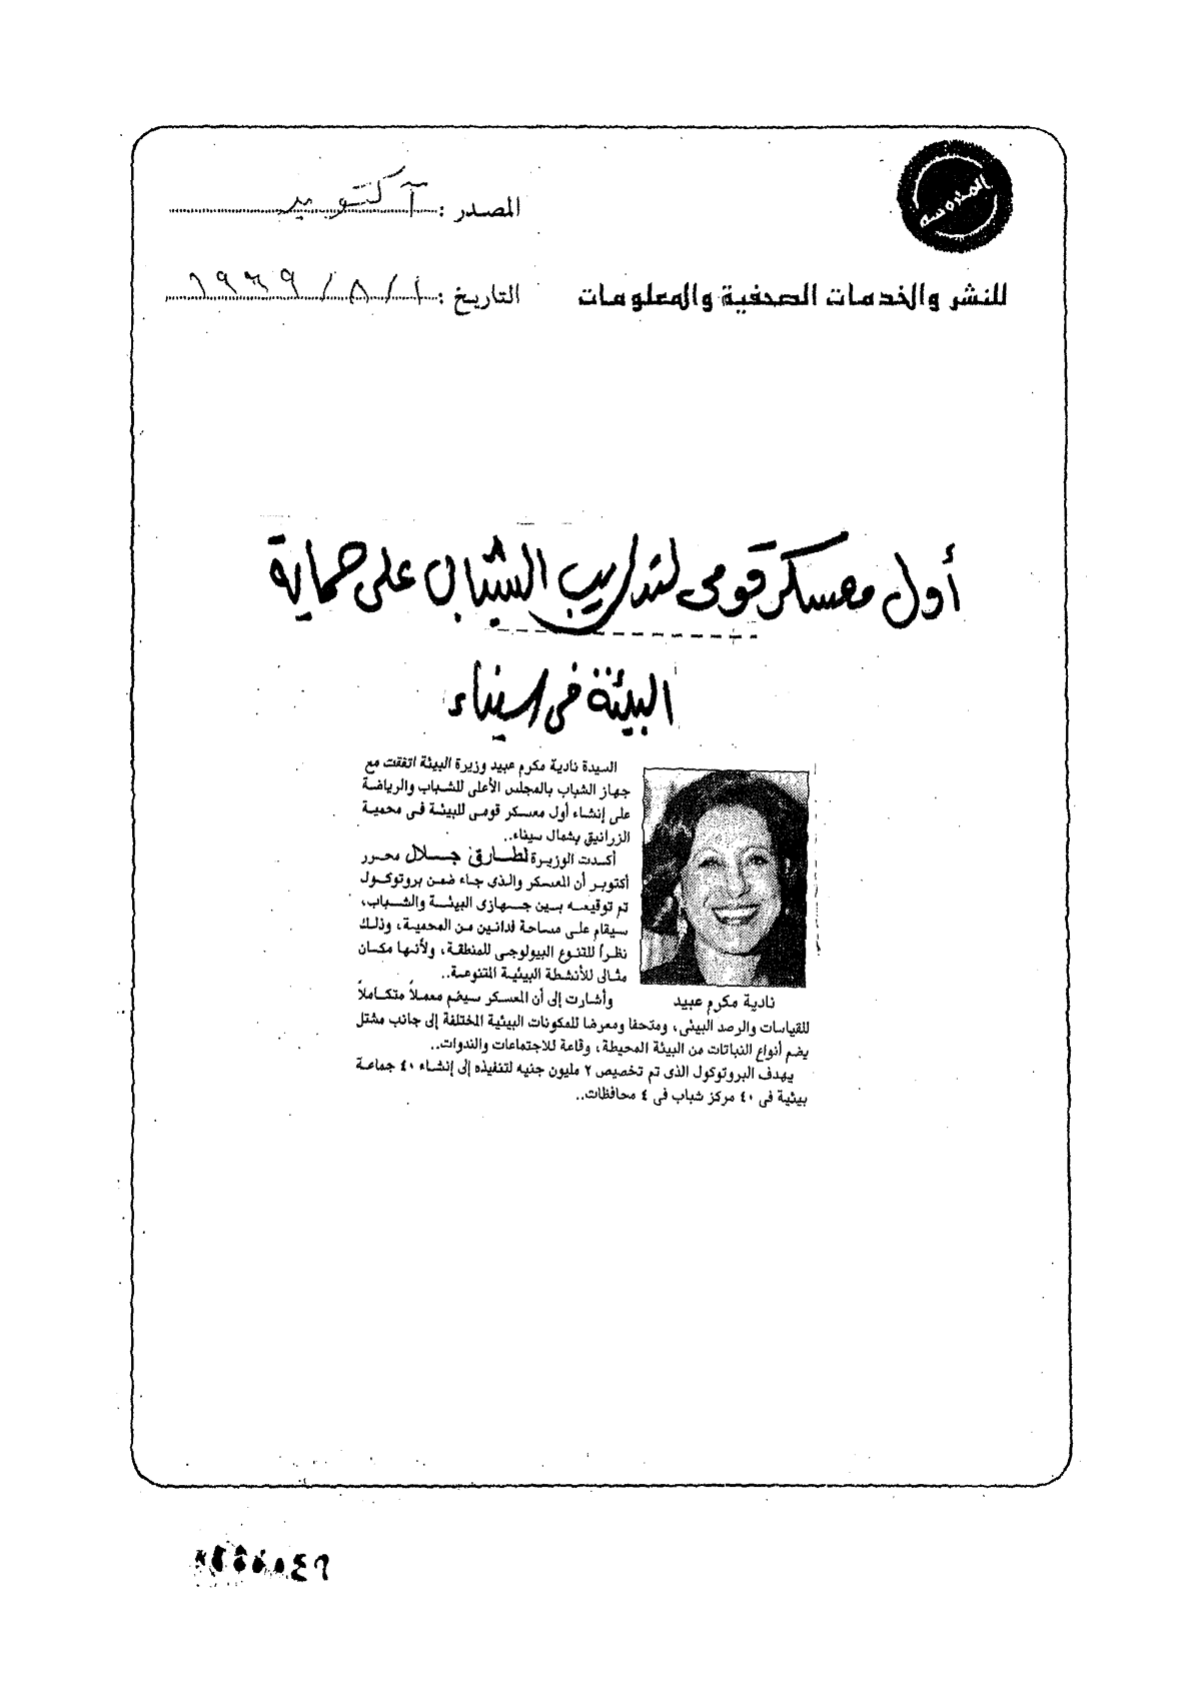 المحروسة
المصدر : أكتوبر
للنشر والخدمات الصحفية والمعلومات
التاريخ : ١ / ٨ /
أول معسكر قومى لتدريب الشباب على حماية
البيئة فى سيناء
السيدة نادية مكرم عبيد وزيرة البيئة اتفقت مع
جهاز الشباب بالمجلس الأعلى للشباب والرياضة
على إنشاء أول معسكر قومى للبيئة فى محمية
الزرانيق بشمال سيناء..
أكدت الوزيرة لطارق جلال محرر
أكتوبر أن المعسكر والذى جاء ضمن بروتوكول
تم توقيعه بين جهازى البيئة والشباب،
سيقام على مساحة فدانين من المحمية، وذلك
نظراً للتنوع البيولوجى للمنطقة، ولأنها مكان
مثالى للأنشطة البيئية المتنوعة..
نادية مكرم عبيد
وأشارت إلى أن المعسكر سيضم معملاً متكاملاً
للقياسات والرصد البيئى، ومتحفا ومعرضا للمكونات البيئية المختلفة إلى جانب مشتل
يضم أنواع النباتات من البيئة المحيطة، وقاعة للاجتماعات والندوات..
يهدف البروتوكول الذى تم تخصيص ٢ مليون جنيه لتنفيذه إلى إنشاء ٤٠ جماعة
بيئية فى ٤٠ مركز شباب فى ٤ محافظات..